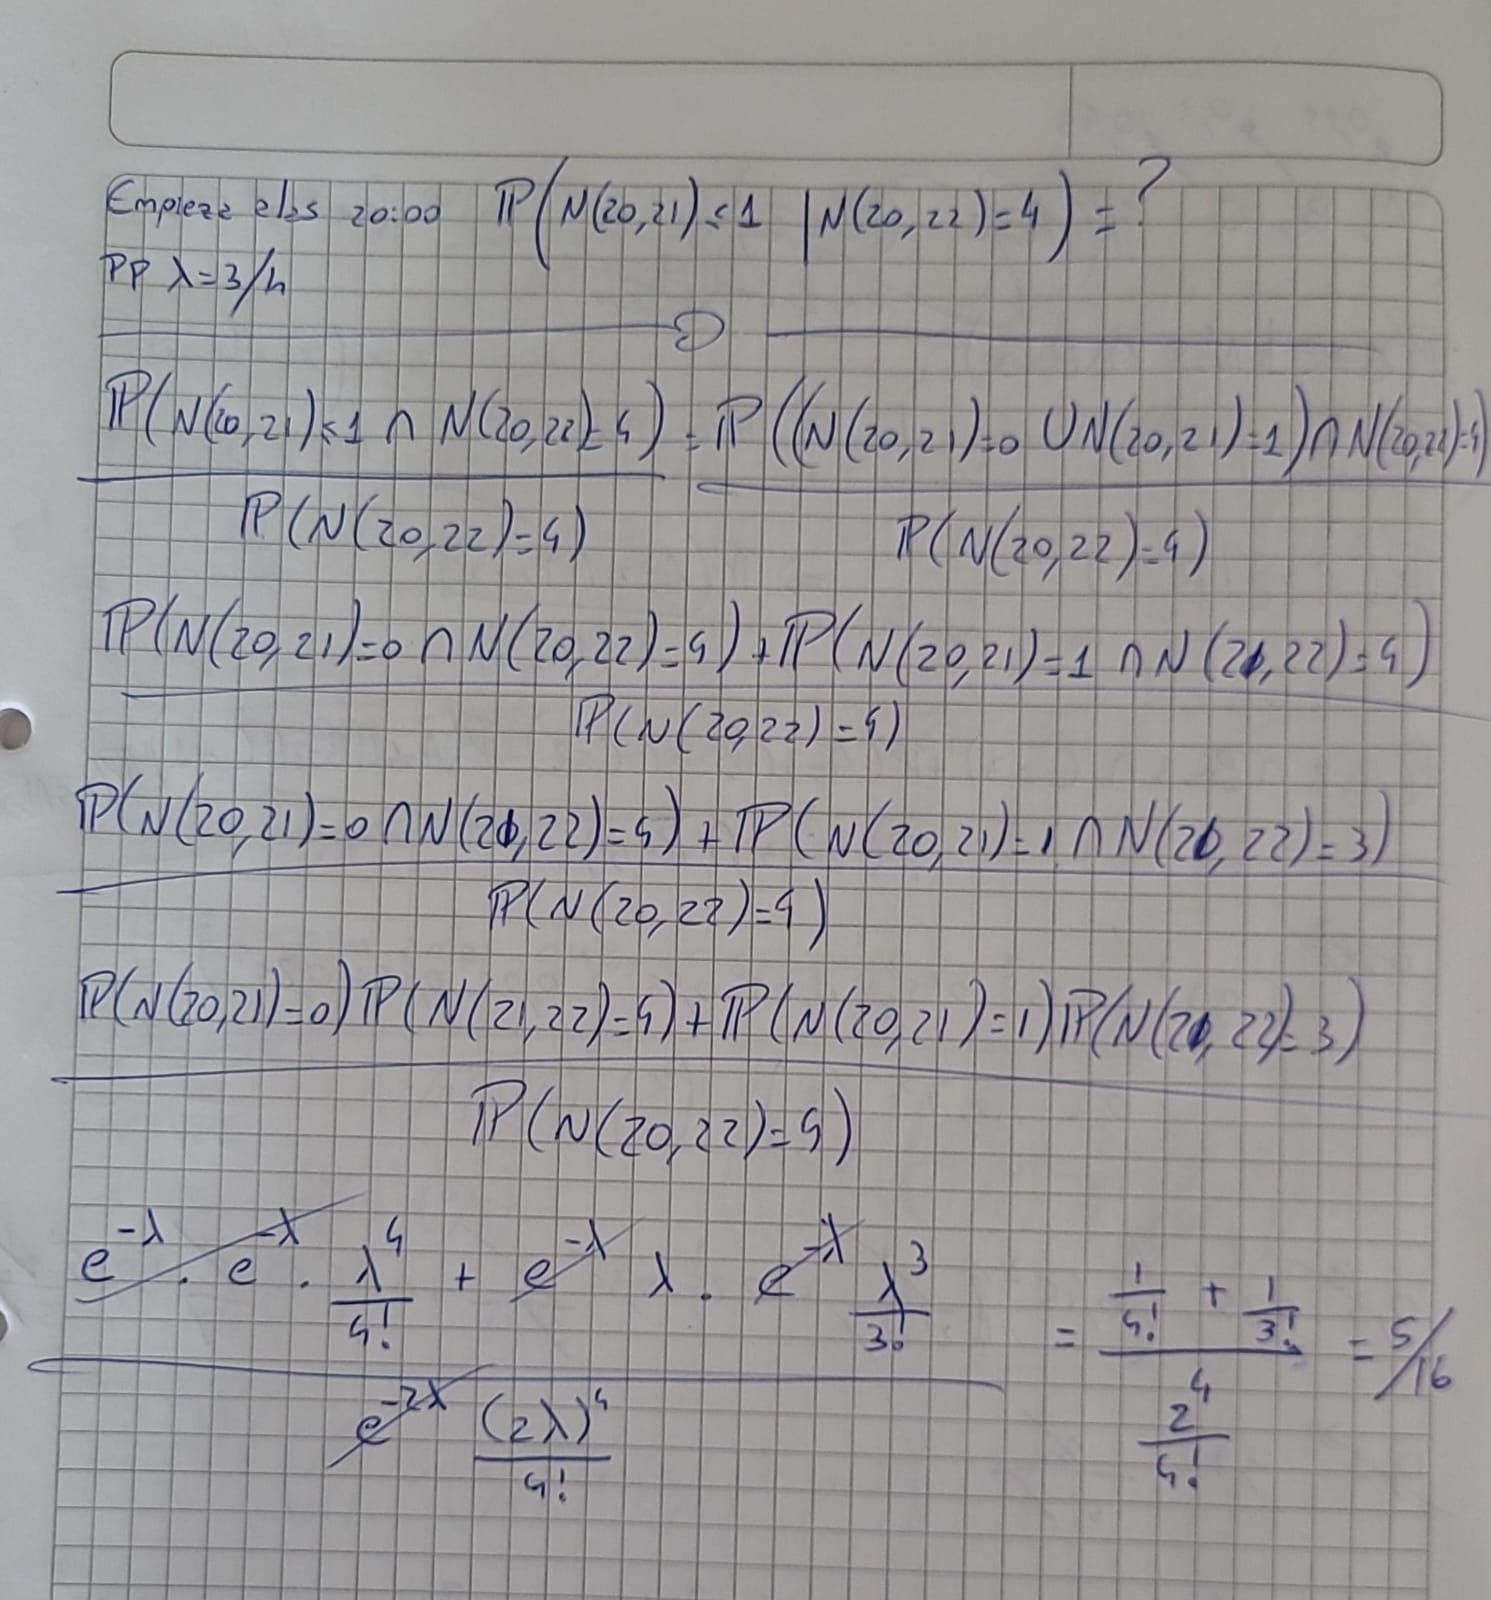 Empieza a las 20:00 ℙ(N(20,21)≤1 | N(20,22)=4) = ?
PP λ=3/h
ℙ(N(20,21)≤1 ∩ N(20,22)=4) = ℙ((N(20,21)=0 ∪ N(20,21)=1) ∩ N(20,22)=4)
ℙ(N(20,22)=4) ℙ(N(20,22)=4)
ℙ(N(20,21)=0 ∩ N(20,22)=4) + ℙ(N(20,21)=1 ∩ N(20,22)=4)
ℙ(N(20,22)=4)
ℙ(N(20,21)=0 ∩ N(21,22)=4) + ℙ(N(20,21)=1 ∩ N(21,22)=3)
ℙ(N(20,22)=4)
ℙ(N(20,21)=0) ℙ(N(21,22)=4) + ℙ(N(20,21)=1) ℙ(N(21,22)=3)
ℙ(N(20,22)=4)
e^-λ · e^-λ · λ^4/4! + e^-λ λ · e^-λ λ^3/3! = 1/4! + 1/3! = 5/16
e^-2λ (2λ)^4/4! 2^4/4!